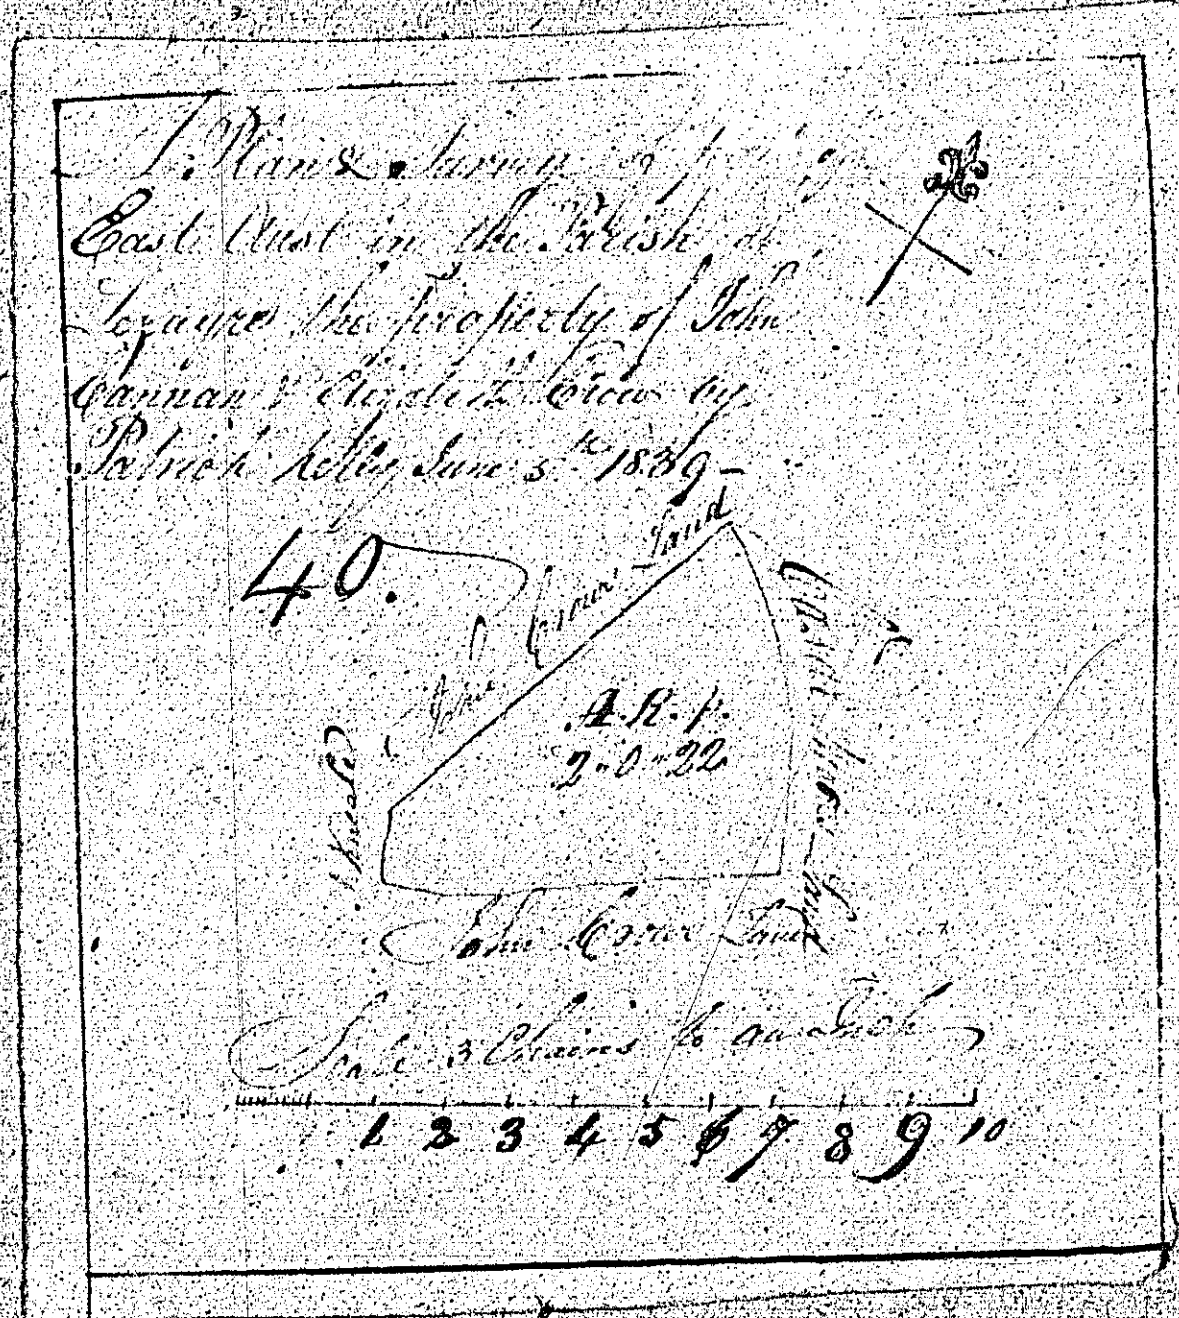 A Plan & Survey of
East in the Parish of
Lezayre the property of John
Cannan & Elizabeth Crow by
Patrick Kelly June 5th 1839 -
40.
John Crow's Land
A. R. p.
2 - 0 - 22
Land
John Crow's Land
Scale 3 Chains to an Inch
1 2 3 4 5 6 7 8 9 10